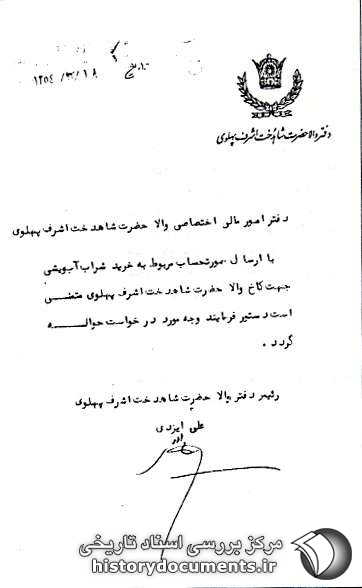 تاریخ ۱۳۵۴/۳/۱۸
دفتر والاحضرت شاهدخت اشرف پهلوی
دفتر امور مالی اختصاصی والا حضرت شاهدخت اشرف پهلوی
با ارسال صورتحساب مربوط به خرید شراب آبویشی
جهت کاخ والا حضرت شاهدخت اشرف پهلوی متمنی
است دستور فرمایند وجه مورد درخواست حواله
گردد .
رئیس دفتر والا حضرت شاهدخت اشرف پهلوی
علی ایزدی
مرکز بررسی اسناد تاریخی
historydocuments.ir